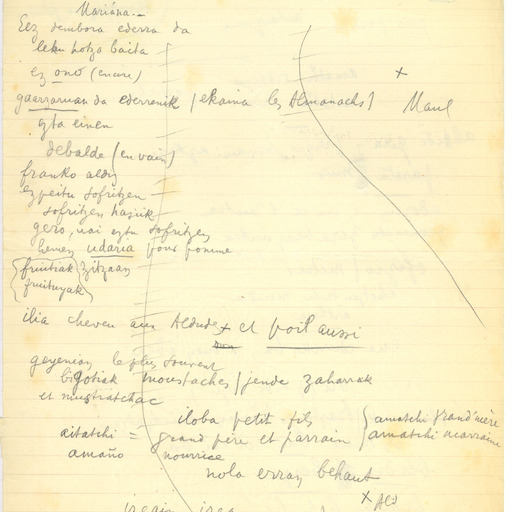 Mariana.-
Eez dembora ederra da
leku hotza baita
ez ono (encore)
gaerzaruan da ederrenik (ekaina les Almanachs)
Maul
ezta einen
debalde (en vain)
franko aldiz
ezpeitu sofritzen
sofritzen hasirik
gero, nai eztu sofritzen
hemen udaria pour pomme
fruitiak zitzaan
fruituyak
ilia cheveu aux Aldudes et poil aussi
geyenian le plus souvent
bigotiak moustaches / jende zaharrak
et mustatchac
iloba petit fils
aitatchi = grand père et parrain
amatchi grand'mère
amatchi marraine
amaño nourrice
nola erran behaut
x Ald